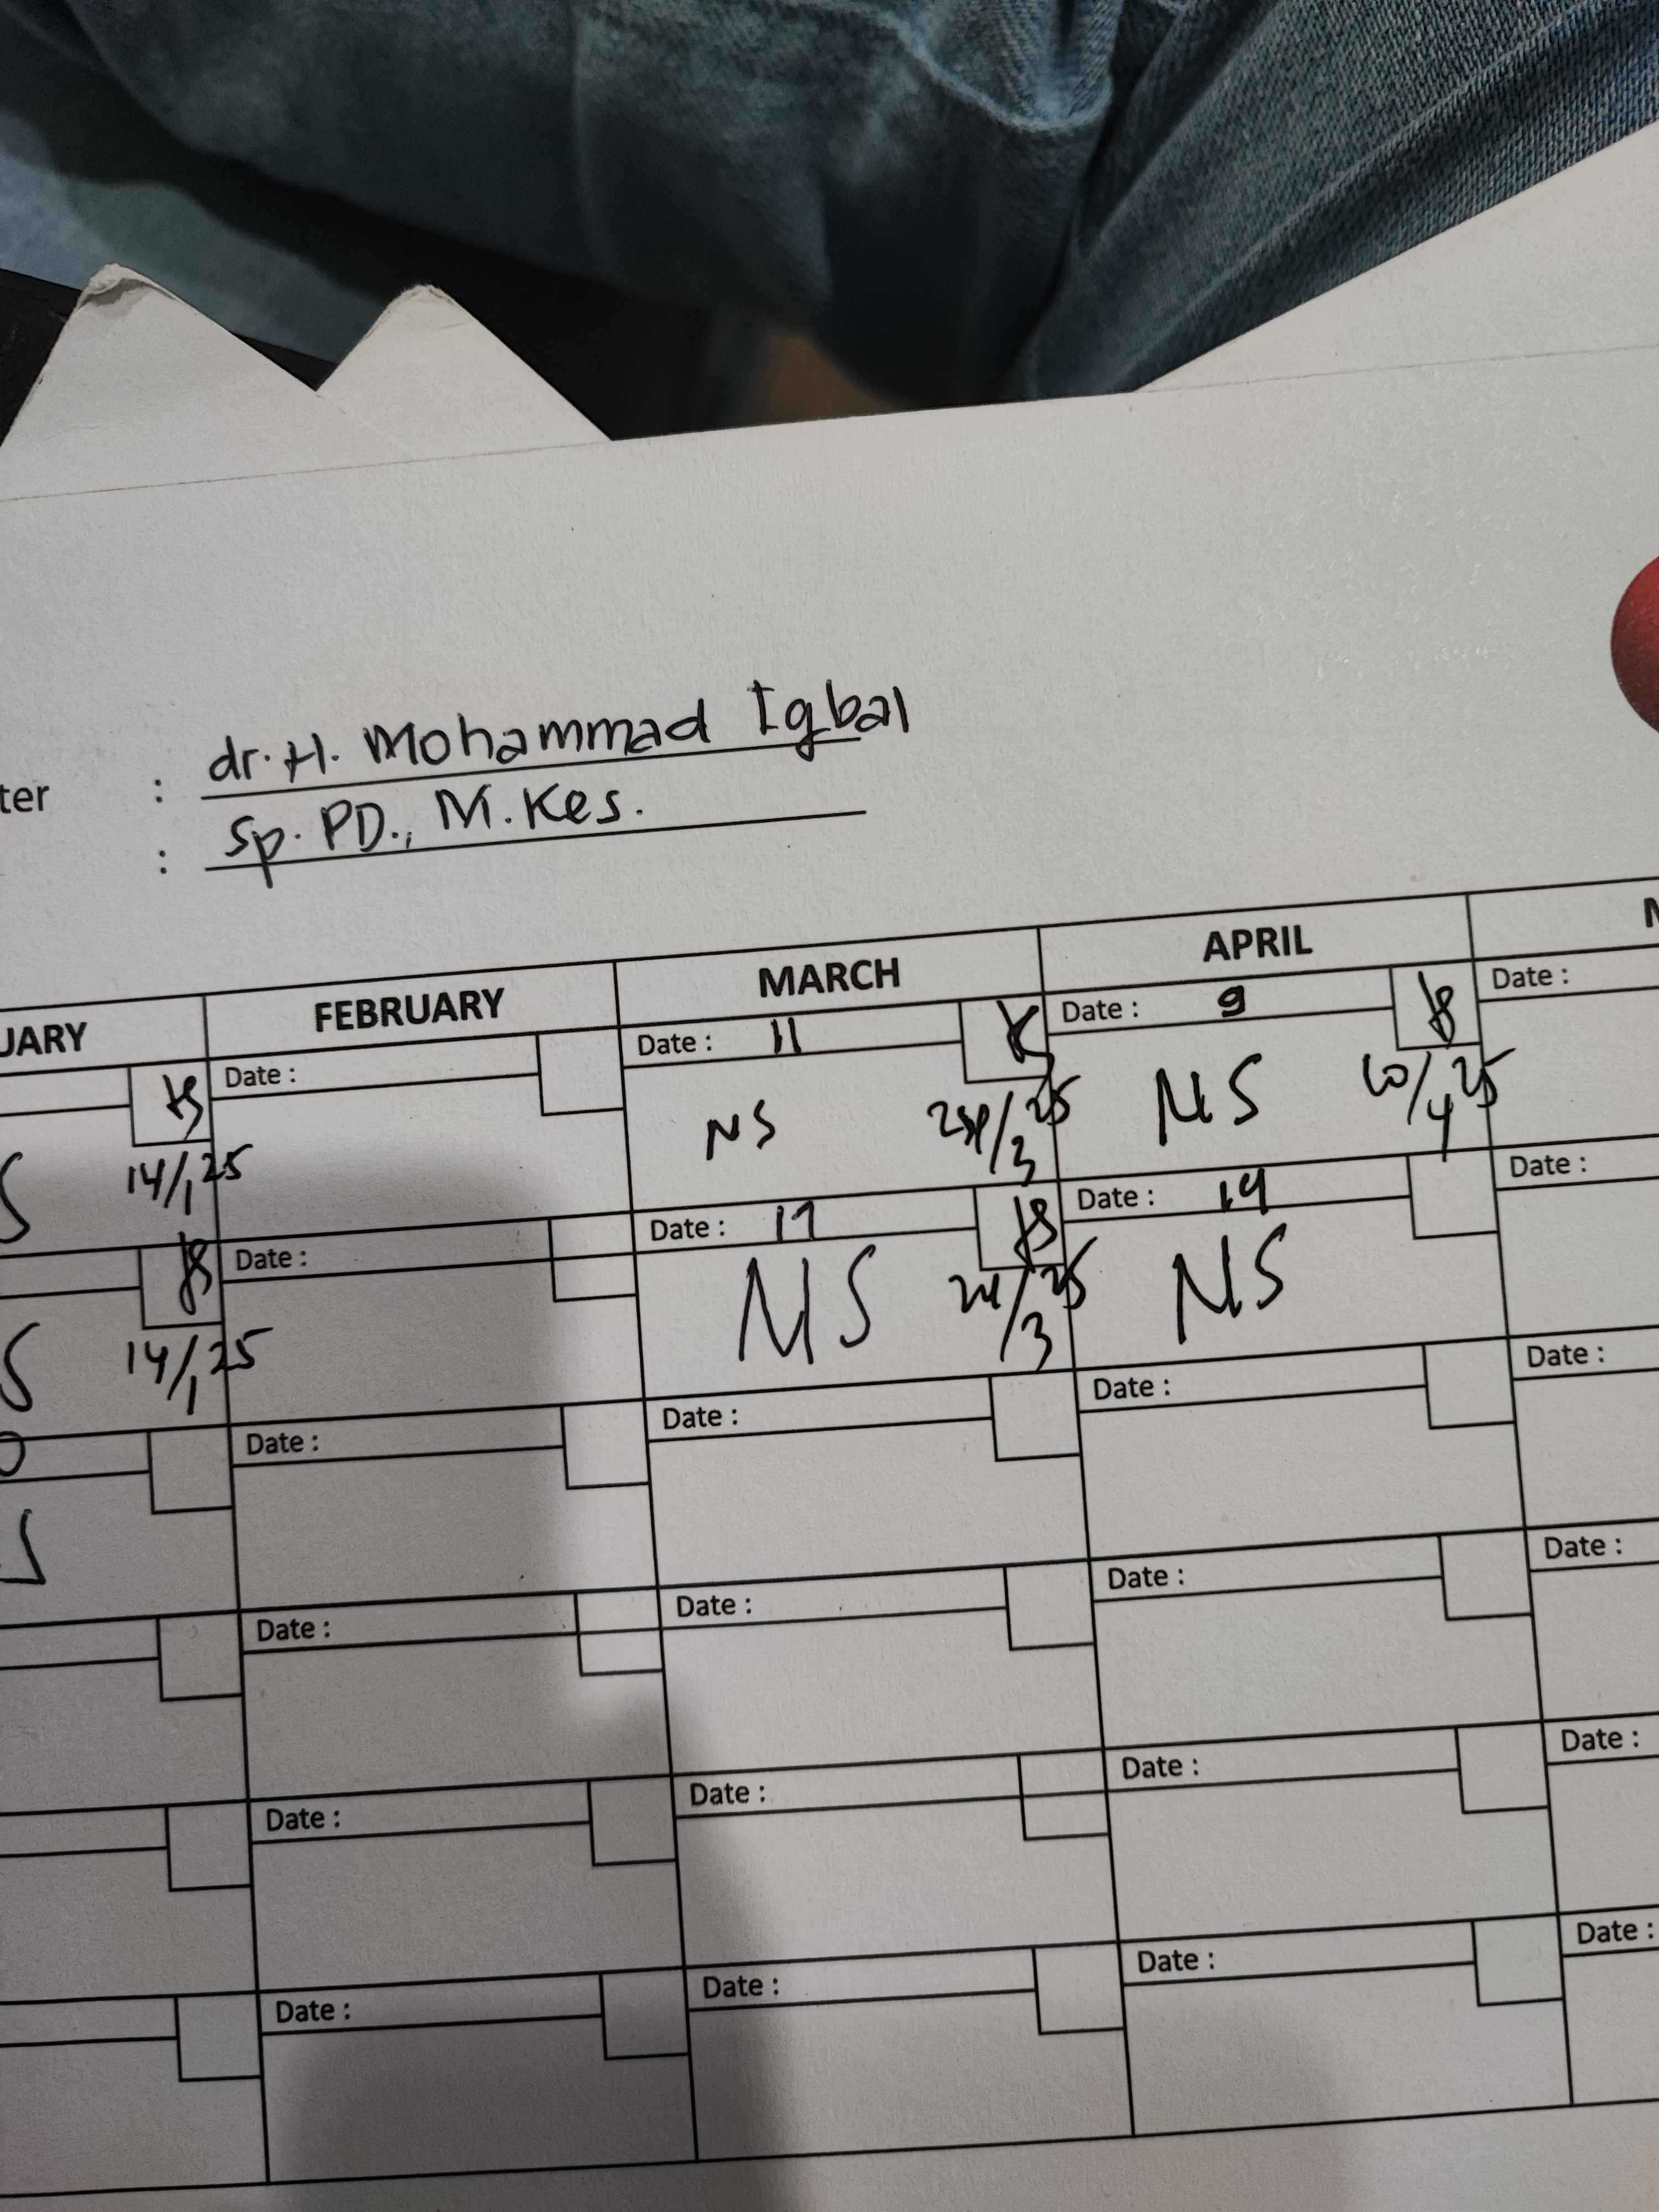 dr. H. Mohammad Iqbal
ter :
Sp. PD., M. Kes.
:
UARY FEBRUARY MARCH APRIL
Date : Date : 11 Date : 9 Date :
14/1 25 NS 25 NS 10/4 25
Date : Date : 17 Date : 19 Date :
14/1 25 NS 24/3 25 NS
Date : Date : Date : Date :
Date : Date : Date : Date :
Date : Date : Date : Date :
Date : Date : Date : Date :